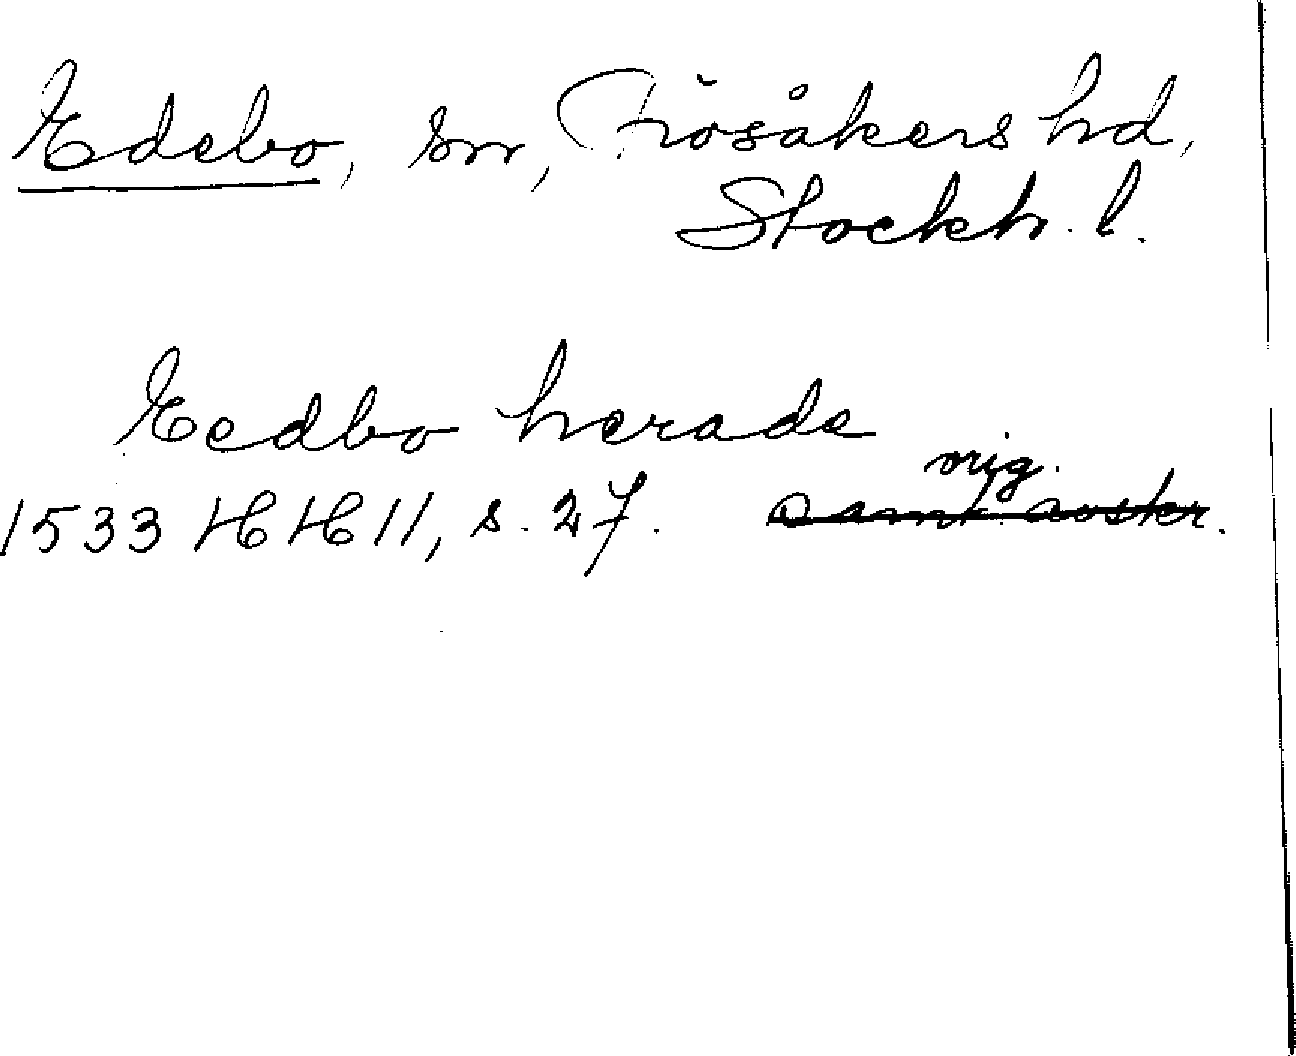 Edebo, sn, Frösåkers hd,
Stockh. l.
Eedbo herade
orig.
1533 HH 11, s. 27. samt. avskr.